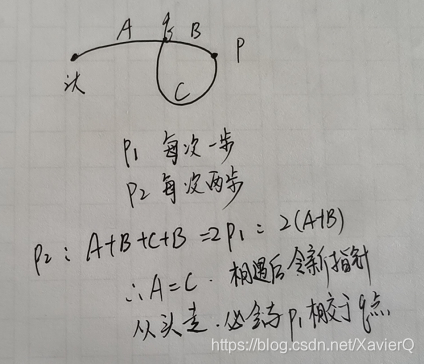 A q B
头 P
C
P1 每次一步
P2 每次两步
P2: A+B+C+B =2P1 = 2(A+B)
∴A=C. 相遇后令新指针
从头走. 必会与P1相交于q点
https://blog.csdn.net/XavierQ